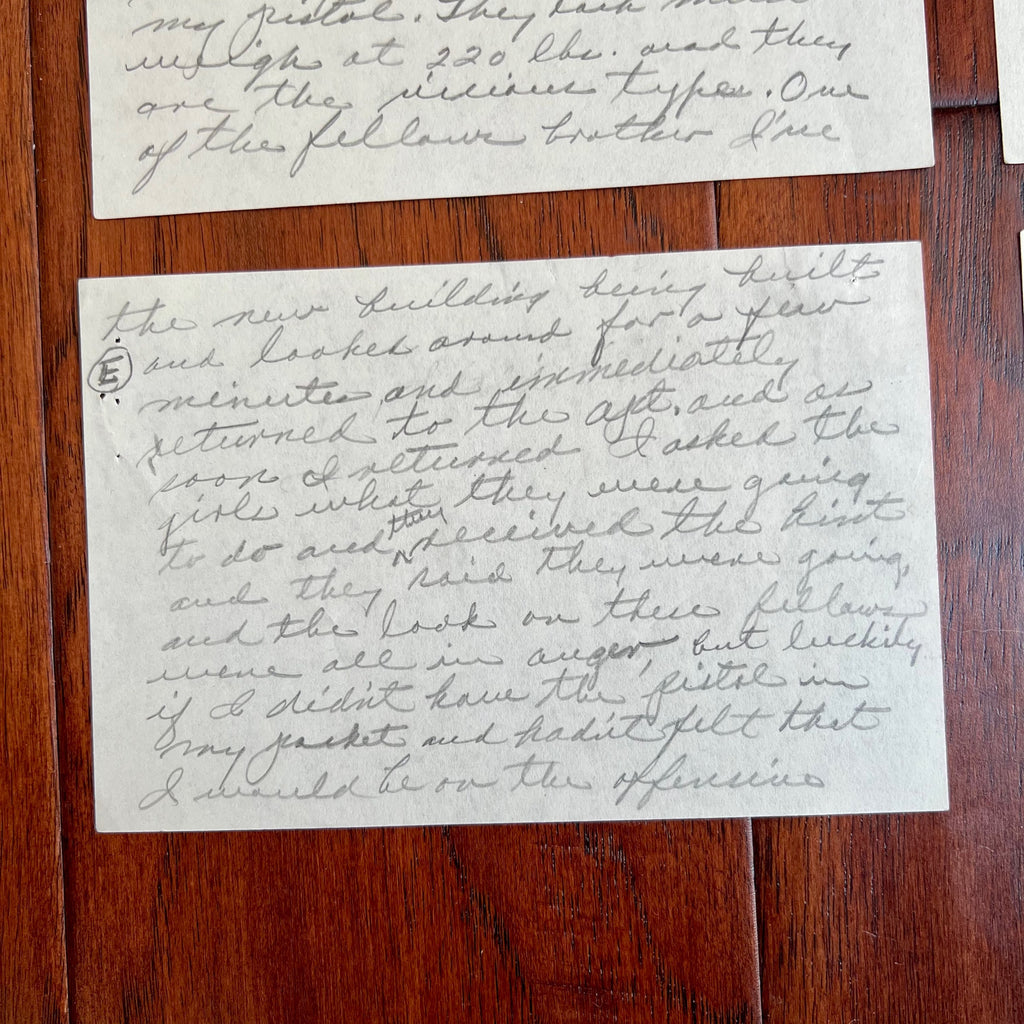 my pistol. They each must
weigh at 220 lbs. and they
are the vicious type. One
of the fellows brother I've
the new building being built
E
and looked around for a few
minutes and immediately
returned to the apt. and as
soon I returned I asked the
girls what they were going
to do and they received the hint
and they said they were going,
and the look on these fellows
were all in anger, but luckily
if I didn't have the pistol in
my pocket and hadn't felt that
I would be on the offensive